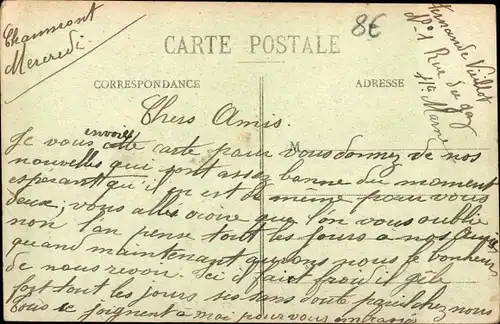 Chaumont
Mercredi
8€
CARTE POSTALE
Fernande Viellot
N° 1 Rue du
Hte Marne
CORRESPONDANCE
ADRESSE
Chers Amis.
M
Je vous envoies cette carte pour vous donnez de nos
nouvelles qui sont assez bonne du moment
espérant qu'il en est de même pour vous
deux, vous allez croire que l'on vous oublie
non l'on pense tout les jours a nos Amis
quand maintenant aurons nous le bonheur
de nous revoir. Ici il fait froid il gèle
fort tout les jours sans doute pareil chez nous
tous se joignent a moi pour vous embrasser